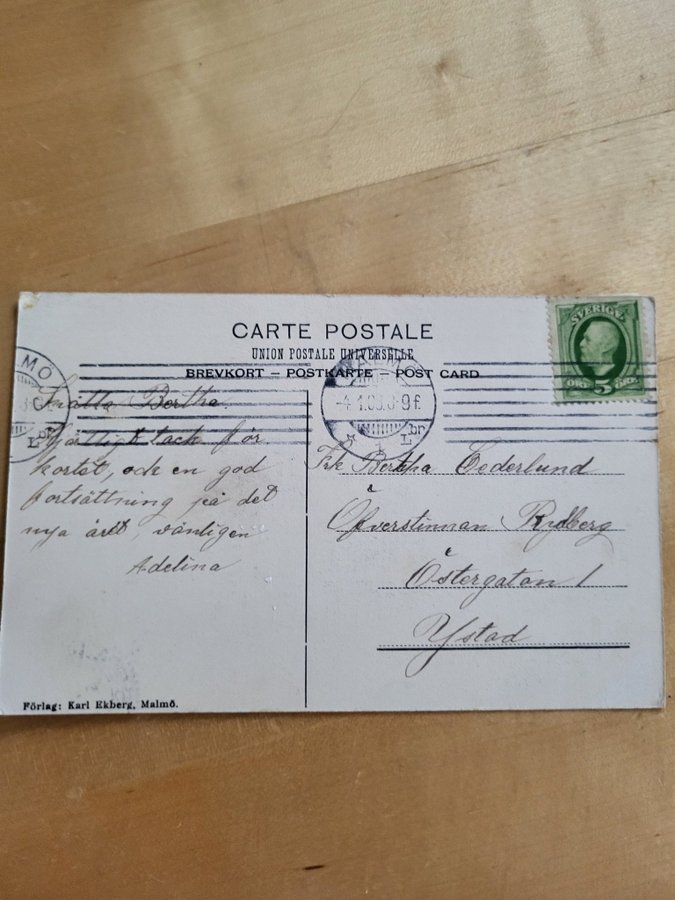 CARTE POSTALE
UNION POSTALE UNIVERSELLE
BREVKORT – POSTKARTE – POST CARD
SVERIGE
ÖRE 5 ÖRE
MALMÖ
L br
Snälla Bertha.
Hjärtligt tack för
kortet, och en god
fortsättning på det
nya året, vänligen
Adelina
Frk Bertha Cederlund
Öfverstinnan Rydberg
Östergatan 1
Ystad
Förlag: Karl Ekberg, Malmö.